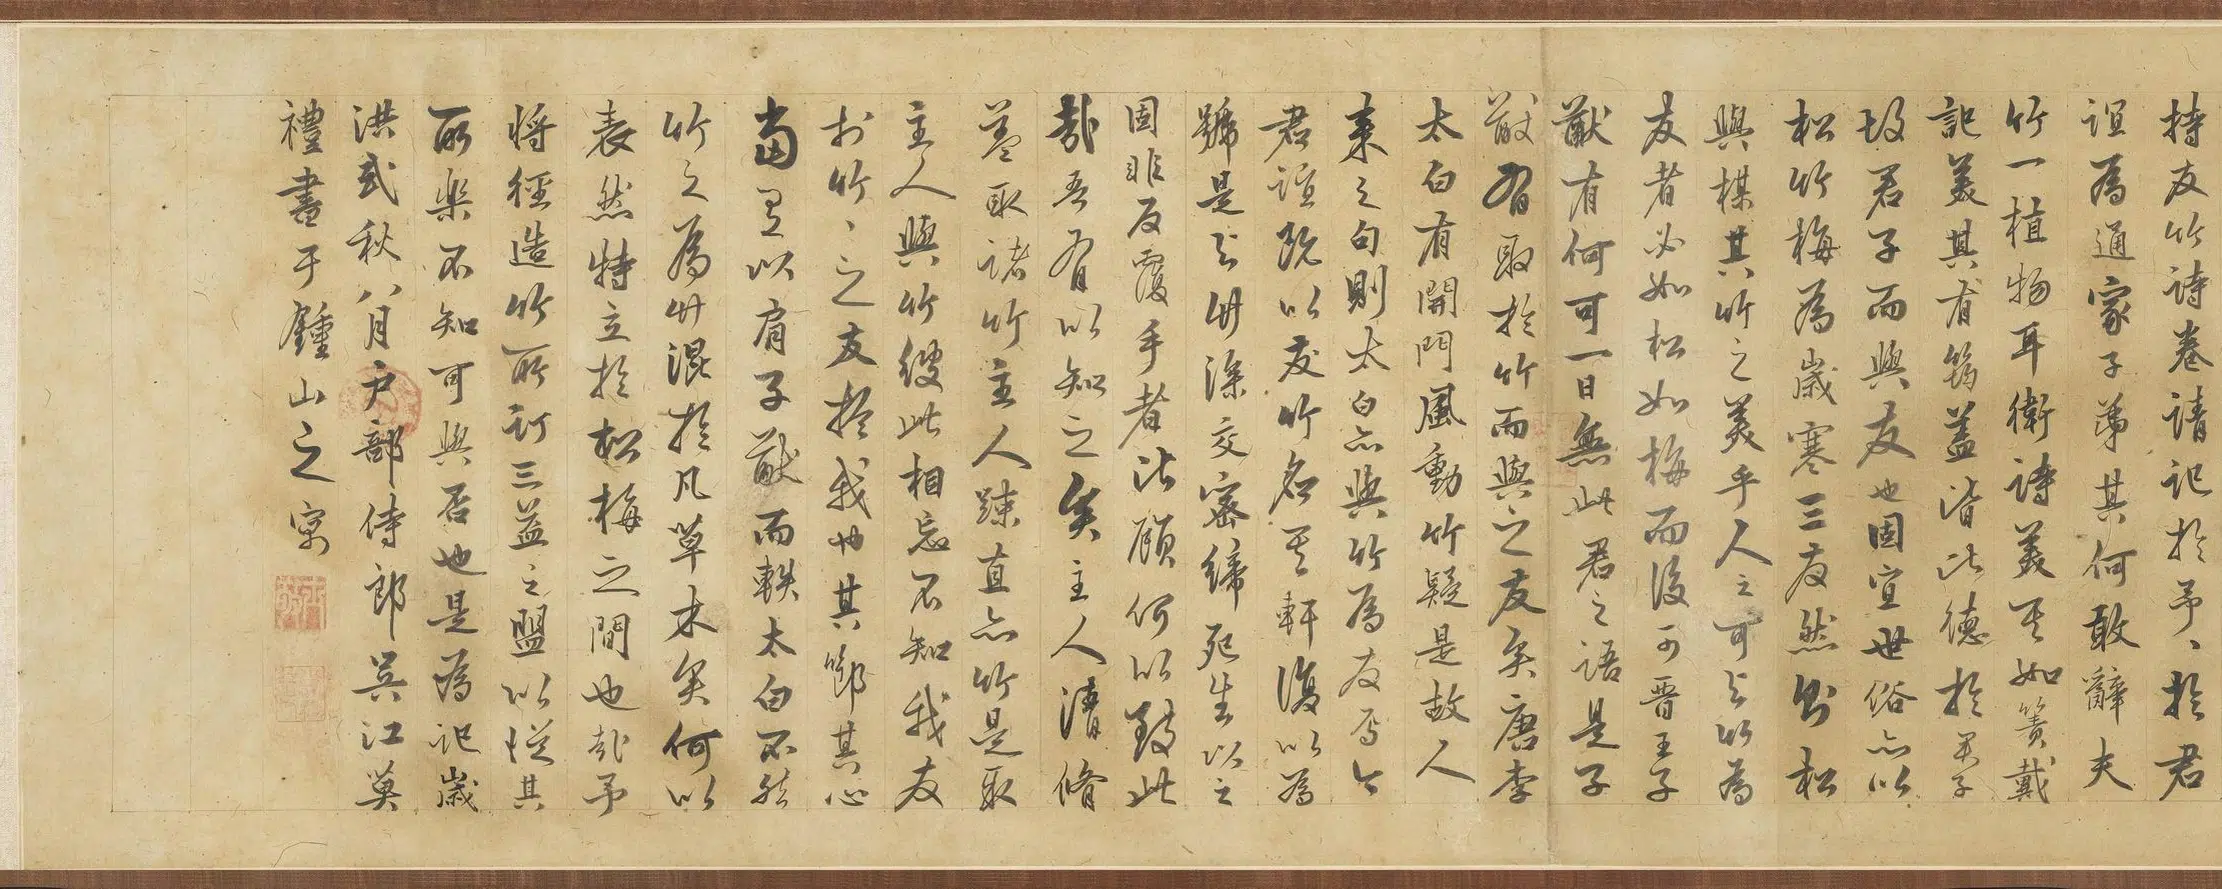 持友竹詩卷請記於予、於君
誼為通家子弟其何敢辭夫
竹一植物耳衛詩美其如簀戴
記美其有筠蓋皆比德於君子
故君子而與友也固宜世俗亦以
松竹梅為歲寒三友然出松
與楳其竹之美乎人之可與以為
友者必如松如梅而後可晉王子
猷有何可一日無此君之語是子
猷有取於竹而與之友矣唐李
太白有開門風動竹疑是故人
來之句則太白亦與竹為友焉今
君誼既以友竹名其軒復以為
號是之謂深交密締死生以之
固非反覆手者比顧何以致此
哉吾有以知之矣主人清脩
蓋取諸竹主人疎直亦竹是取
主人與竹彼此相忘不知我友
於竹、之友於我也其節其心
當有以肩子猷而軼太白不然
竹之為物混於凡草木矣何以
表然特立於松梅之間也哉予
將徑造竹所訂三益之盟以從其
所樂不知可與否也是為記歲
洪武秋八月戶部侍郎吳江莫
禮書于鍾山之寓